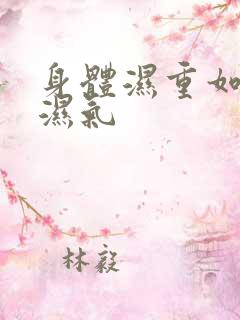 身體濕重如
濕氣
林毅